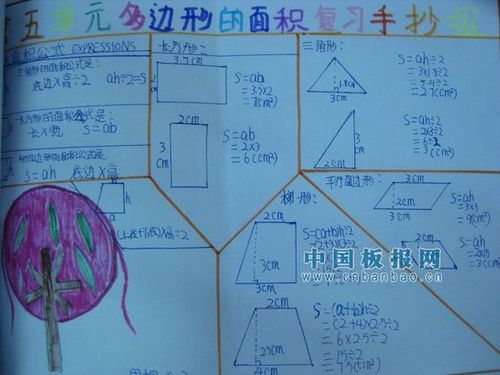 五单元多边形的面积复习手抄报
积公式 EXPRESSIONS
三角形的面积公式是:
底边X高÷2 ah÷2=S
长方形的面积公式是:
长X宽 S=ab
形的面积公式是:
S=ah 底边X高
a
h
X高÷2
长方形:
3.5cm
2cm
S=ab
=3.5X2
=7(cm²)
2cm
3cm
S=ab
=2X3
=6(cm²)
三角形:
1.8cm
3cm
S=ah÷2
=3X1.8÷2
=5.4÷2
=2.7(cm²)
3cm
2cm
S=ah÷2
=2X3÷2
=6÷2
=3(cm²)
平行四边形:
3cm
2cm
S=ah
=3X3
=9(cm²)
S=ah
梯形:
2cm
3cm
3cm
S=(a+b)h÷2
2cm
2.5cm
4cm
S=(a+b)h÷2
=(2+4)X2.5÷2
=6X2.5÷2
=15÷2
=7.5(cm²)
中国板报网
www.cnbanbao.cn